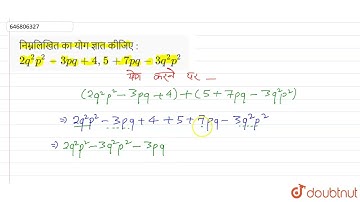 646806327
निम्नलिखित का योग ज्ञात कीजिए :
2q²p² − 3pq + 4, 5 + 7pq − 3q²p²
योग करने पर —
(2q²p² − 3pq + 4) + (5 + 7pq − 3q²p²)
⇒ 2q²p² − 3pq + 4 + 5 + 7pq − 3q²p²
⇒ 2q²p² − 3q²p² − 3pq
doubtnut